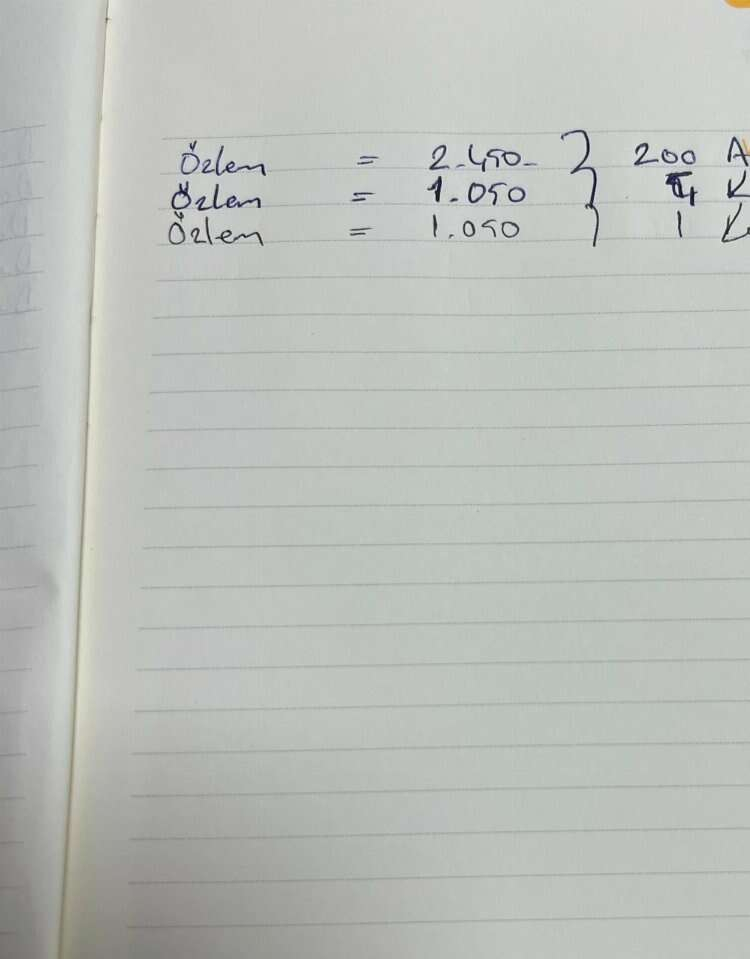 Özlem = 2.450- } 200 A
Özlem = 1.050 } 4
Özlem = 1.050 } 1